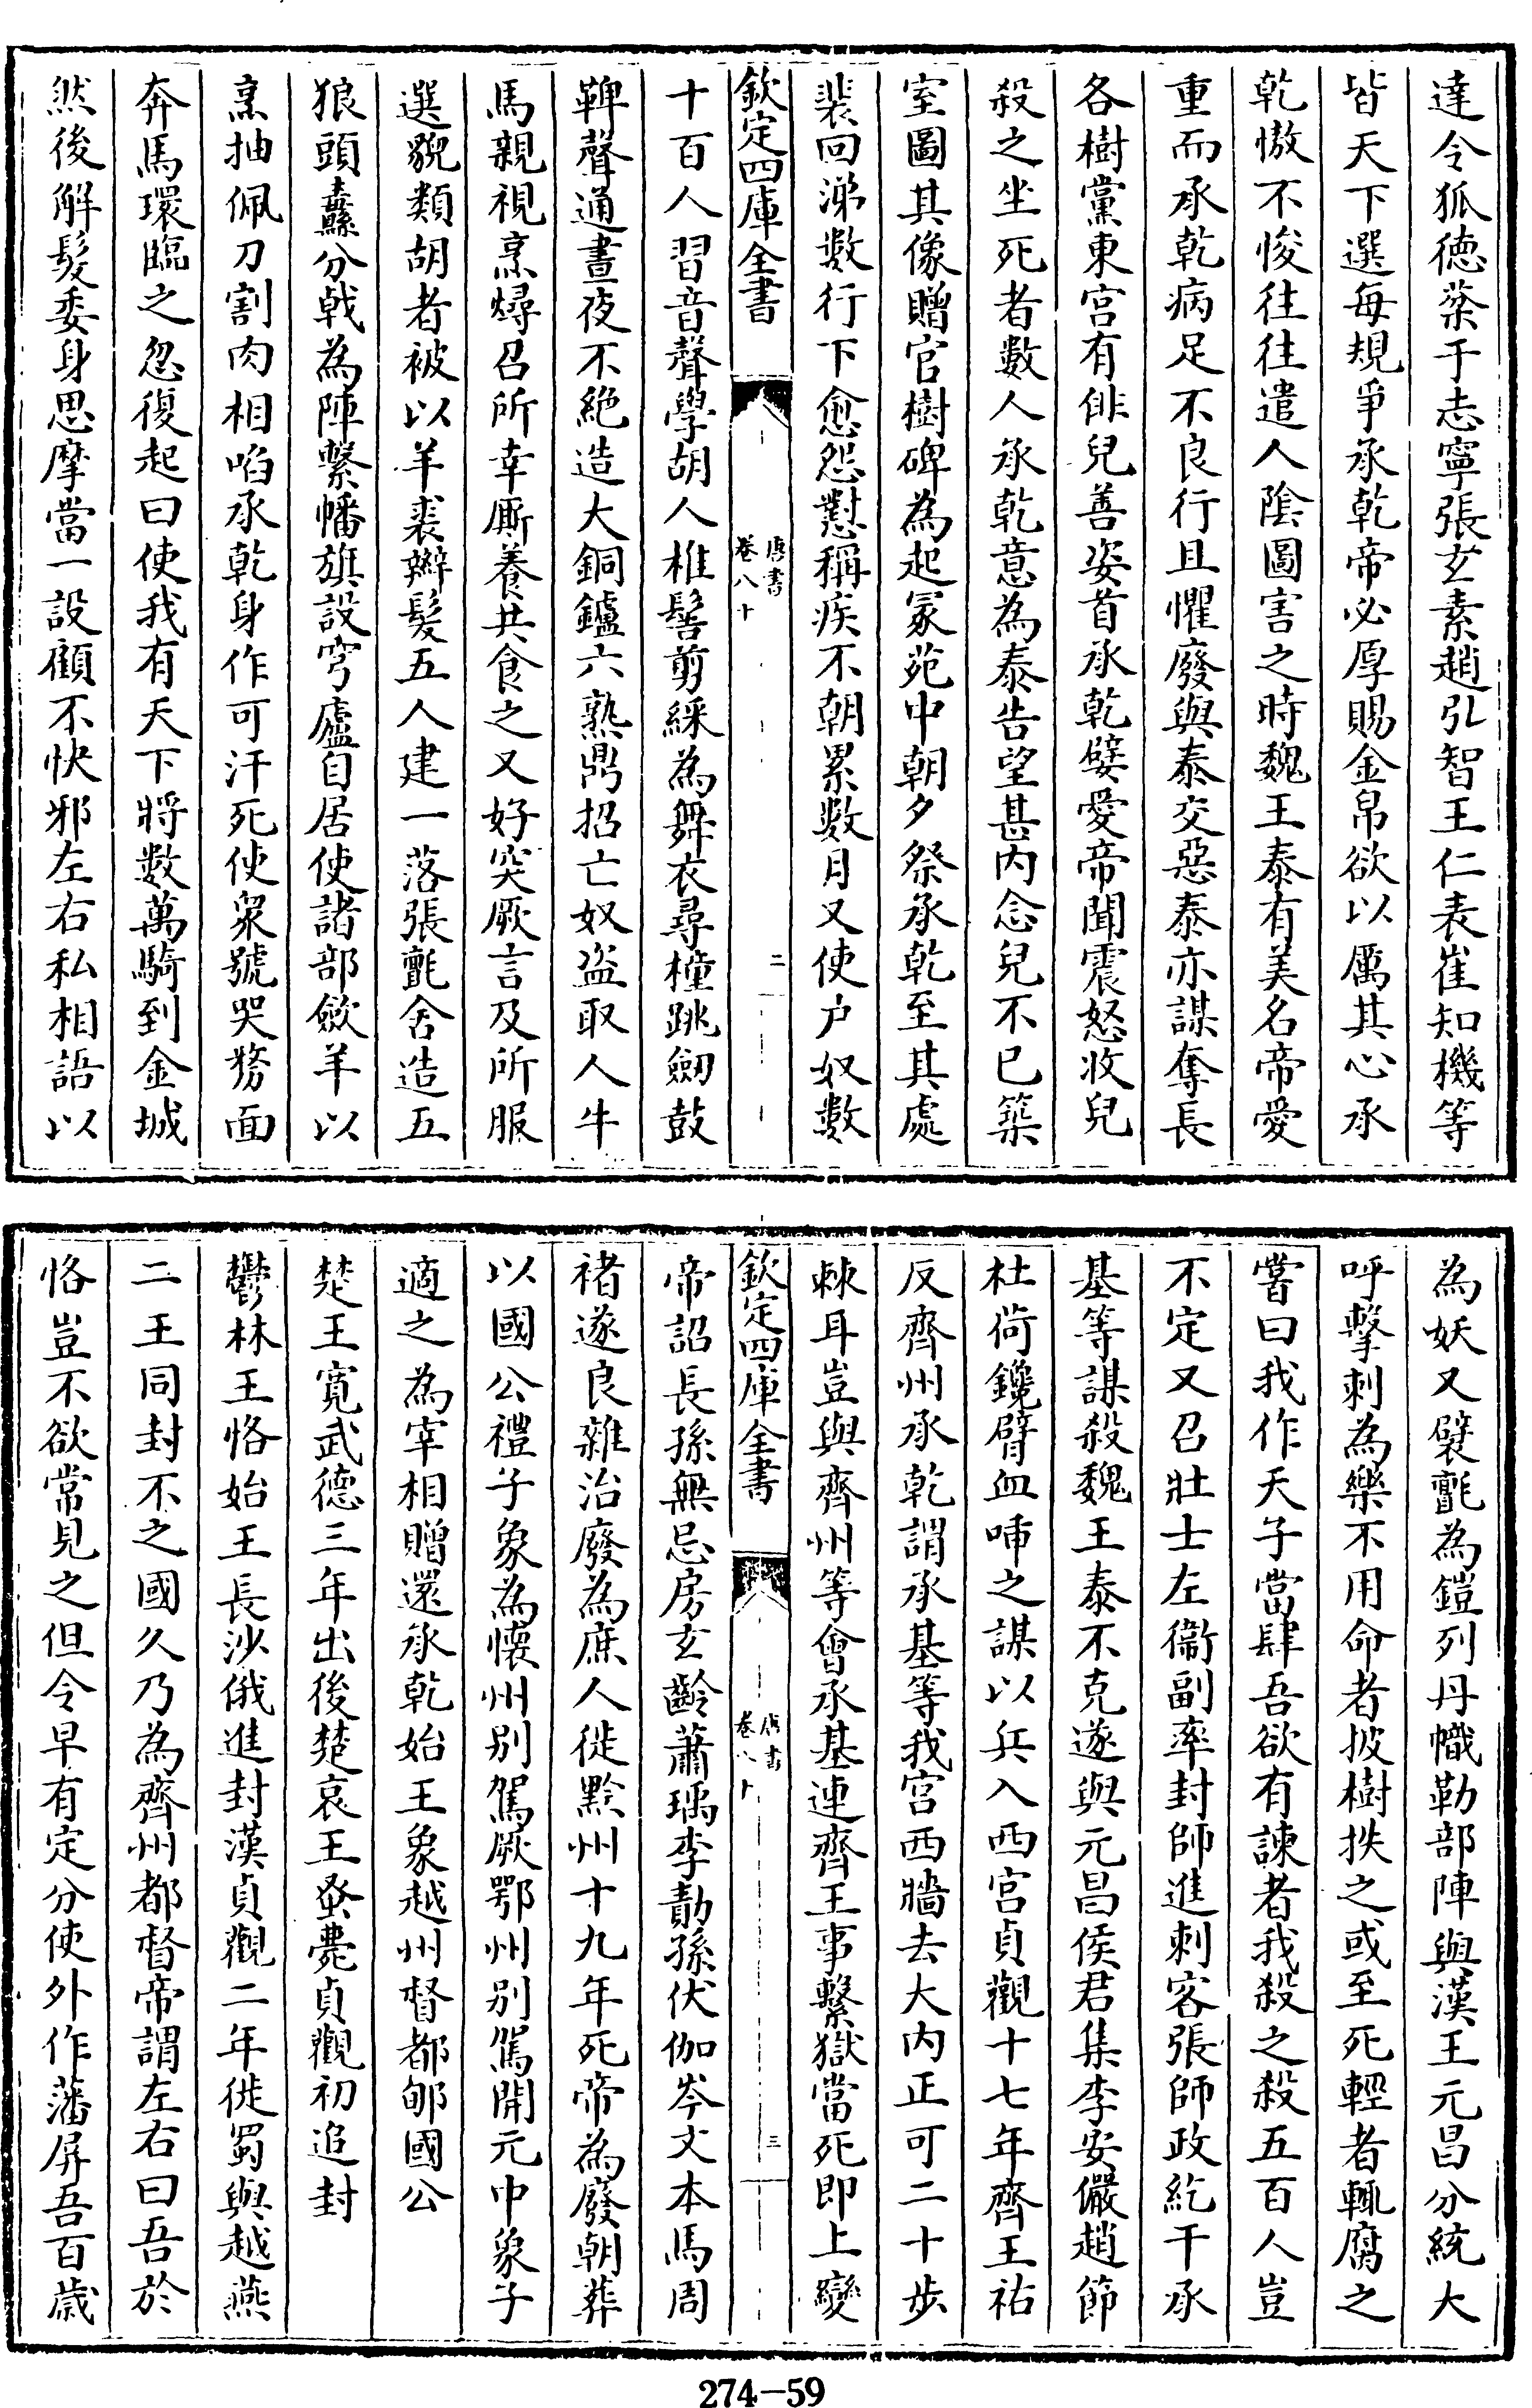 達令狐徳棻于志寧張玄素趙弘智王仁表崔知機等
皆天下選每規爭承乾帝必厚賜金帛欲以厲其心承
乾慠不悛往往遣人陰圖害之時魏王泰有美名帝愛
重而承乾病足不良行且懼廢與泰交惡泰亦謀奪長
各樹黨東宮有俳兒善姿首承乾嬖愛帝聞震怒收兒
殺之坐死者數人承乾意為泰告望甚内念兒不已築
室圖其像贈官樹碑為起冢苑中朝夕祭承乾至其處
裴回涕數行下愈怨懟稱疾不朝累數月又使户奴數
欽定四庫全書
唐書
卷八十
二
十百人習音聲學胡人椎髻剪綵為舞衣尋橦跳劒鼓
鞞聲通晝夜不絶造大銅鑪六熟鼎招亡奴盜取人牛
馬親視烹燖召所幸厮養共食之又好突厥言及所服
選貌類胡者被以羊裘辮髮五人建一落張氈舍造五
狼頭纛分戟為陣繫幡旗設穹廬自居使諸部歛羊以
烹抽佩刀割肉相啗承乾身作可汗死使衆號哭剺面
奔馬環臨之忽復起曰使我有天下將數萬騎到金城
然後解髮委身思摩當一設顧不快邪左右私相語以
為妖又襞氈為鎧列丹幟勒部陣與漢王元昌分統大
呼擊刺為樂不用命者披樹抶之或至死輕者輒腐之
嘗曰我作天子當肆吾欲有諫者我殺之殺五百人豈
不定又召壯士左衞副率封師進刺客張師政紇干承
基等謀殺魏王泰不克遂與元昌侯君集李安儼趙節
杜荷鑱臂血㖊之謀以兵入西宮貞觀十七年齊王祐
反齊州承乾謂承基等我宮西牆去大内正可二十步
棘耳豈與齊州等會承基連齊王事繫獄當死即上變
欽定四庫全書
唐書
卷八十
三
帝詔長孫無忌房玄齡蕭瑀李勣孫伏伽岑文本馬周
褚遂良雜治廢為庶人徙黔州十九年死帝為廢朝葬
以國公禮子象為懷州别駕厥鄂州别駕開元中象子
適之為宰相贈還承乾始王象越州督都郇國公
楚王寛武德三年出後楚哀王蚤薨貞觀初追封
鬱林王恪始王長沙俄進封漢貞觀二年徙蜀與越燕
二王同封不之國久乃為齊州都督帝謂左右曰吾於
恪豈不欲常見之但令早有定分使外作藩屏吾百歲
274—59